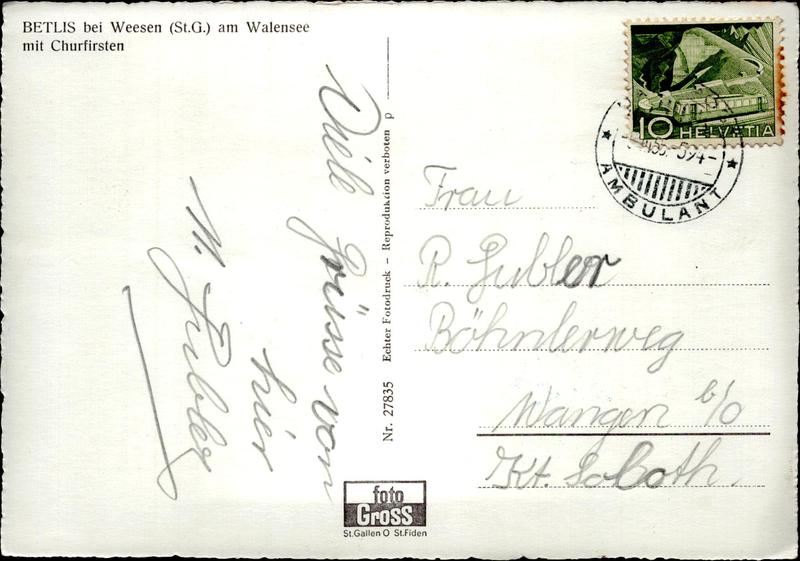 BETLIS bei Weesen (St.G.) am Walensee
mit Churfirsten
Viele Grüsse von
hier
M. Gubler
Nr. 27835 Echter Fotodruck – Reproduktion verboten p
foto
Gross
St.Gallen O St.Fiden
10 HELVETIA
AMBULANT
Frau
R. Gubler
Böhnlerweg
Wangen b/O
Kt. Soloth.